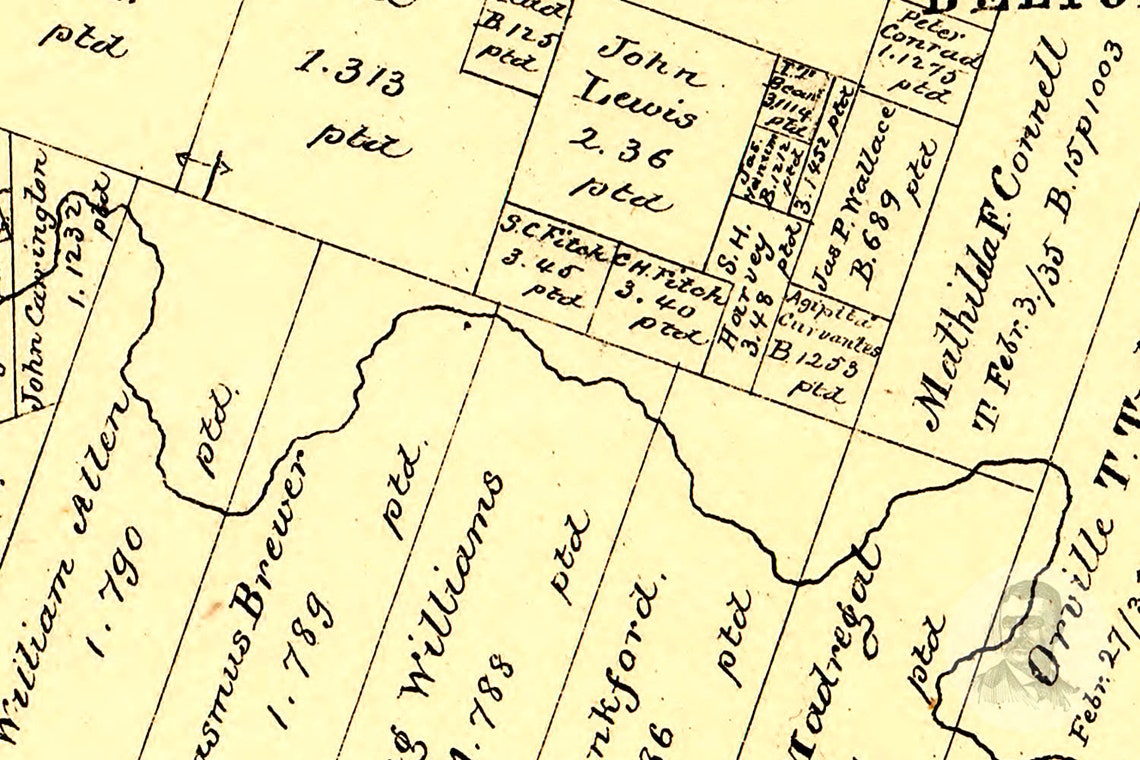 ptd
1.313
ptd
B.125
ptd
John
Lewis
2.36
ptd
Bean
3.1114
ptd
Jas.
B.1212
ptd
3.1452 ptd
Peter
Conrad
1.1275
ptd
Jas P. Wallace
B.689
ptd
Mathilda F. Connell
T. Febr. 3./35 B.15 p1003
John Carrington
1.1232
ptd
S.C. Fitch
3.45
ptd
C.H. Fitch
3.40
ptd
S.H.
Harvey
3.48
ptd
Agipita
Curvantes
B.1253
ptd
William Allen
1.790
ptd.
asmus Brewer
1.789
ptd.
g Williams
1.788
ptd
nkford.
36
ptd
Madregal
ptd
Orville T. T
Febr. 27/3